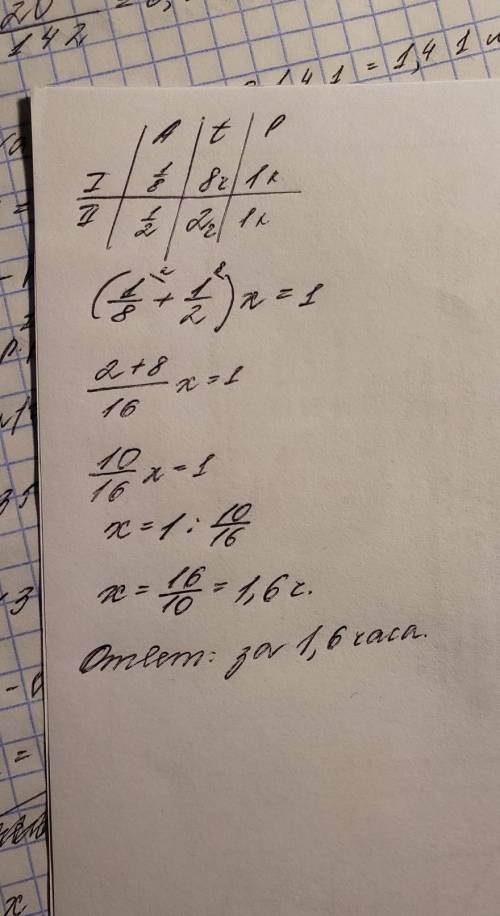 20
142
1,41 = 1,41
A | t | P
I | 1/8 | 8ч | 1к
II | 1/2 | 2ч | 1к
(1/8 + 1/2)x = 1
2+8/16 x = 1
10/16 x = 1
x = 1 : 10/16
x = 16/10 = 1,6ч.
Ответ: за 1,6 часа.